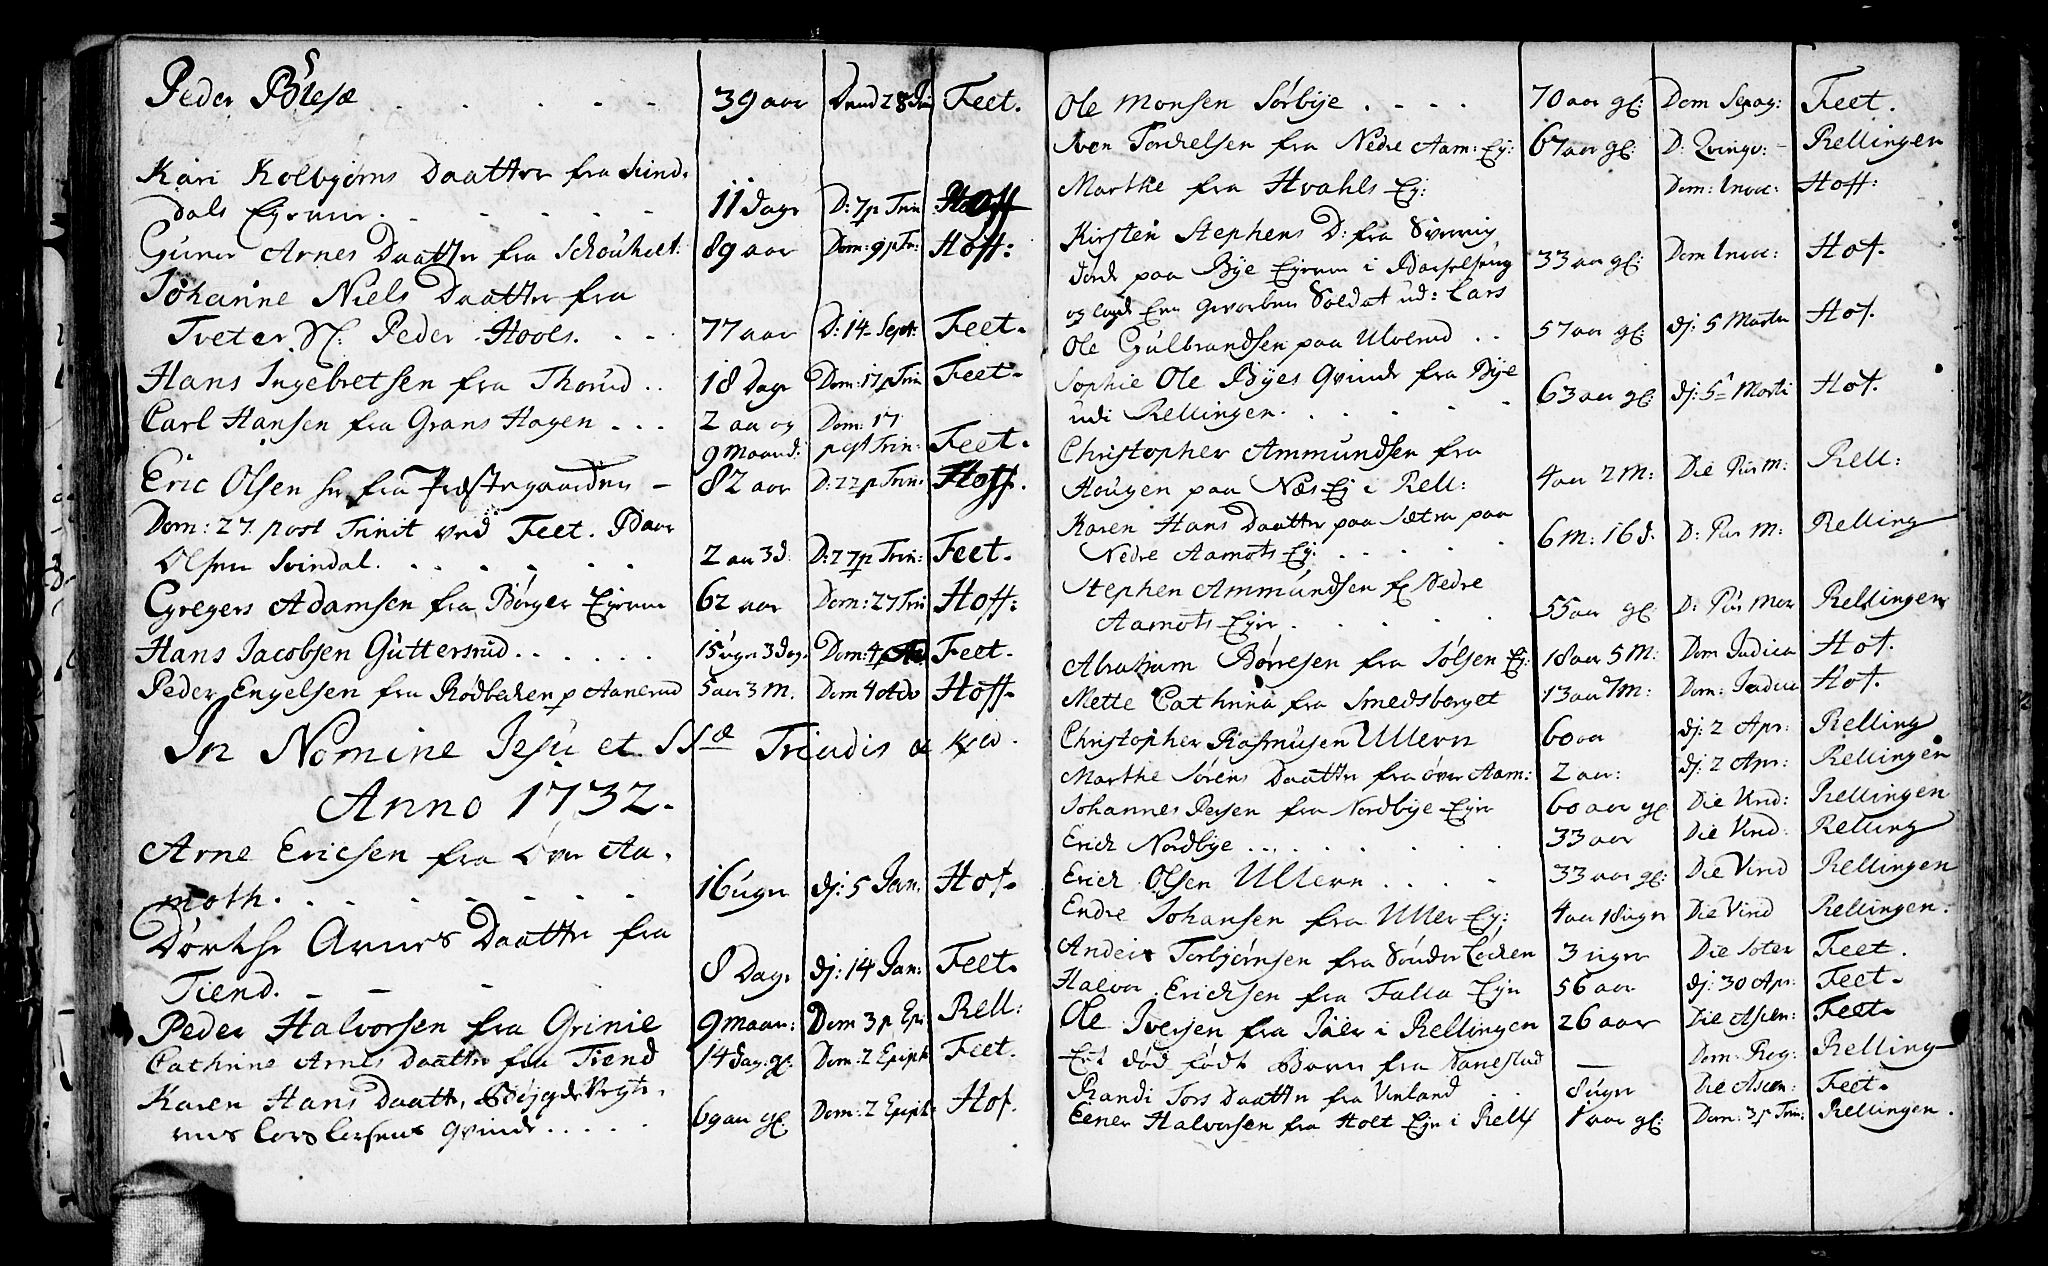 Peder Bölesæ . . . . . . 39 aar Feet.
Kari Kolbjørns Daatter fra Svind-
dals Eyrum. . . . . . 11 dage D: 7 p Trin Hoff
Guner Arnes Daatter fra 89 aar Dom: 9 p Tr: Hoff:
Johanne Niels Daatter fra
Tveter Sl: Peder Hools. . . 77 aar D: 14 Sept: Feet.
Hans Ingebretsen fra Thorud . . 18 dage Dom: 17 p Trin Feet.
Carl Hansen fra Grans Hagen . . . 2 aar og Dom: 17
9 maand: post Trin: Feet.
Eric Olsen fra Præstegaarden – 82 aar D: 22 p Trin: Hoff.
Dom: 27. post Trinit ved Feet. Povr
Olsen Svindal. . . . . . 2 aar 3 d. D: 27 p Trin: Feet.
Gregers Adamsen fra Børger Eyrum 62 aar Dom: 27 Trin Hoff:
Hans Jacobsen Guttersrud . . . . . . 15 uger 3 dag. Dom: 4 Adv Feet.
Peder Engelsen fra Rødbecken p Aanerud 5 aar 3 M. Dom 4 Adv Hoff.
In Nomine Jesu et SSæ Triadis
Anno 1732.
Arne Ericsen fra Øver Aa-
moth. . . . . . . 16 uger dj: 5 Jan: Hof.
Dorthe Arnes Daatter fra
Tiend. – – – 8 Dage dj: 14 Jan: Feet.
Peder Halvorsen fra Grinie 9 maan: Dom 3 p Epi: Rell:
Cathrine Arnes Daatter fra Tiend 14 dag. gl: Dom: 2 Epiph: Feet.
Karen Hans Daatter,
Lars Larsens Qvinde . . . . . 69 aar gl: Dom: 2 Epiph: Hof.
Ole Monsen Sørbye . . . . 70 aar gl: Dom Sepag: Feet.
Iven Torchelsen fra Nedre Aam: Ey: 67 aar gl: D: Qvinqv: – Rellingen
Marthe fra Hvahls Ey: Dom: Invoc: Hoff:
Kirsten Stephens D: fra
døde paa Bye Eyrum i 33 aar gl: Dom Invoc: Hof.
og lagde Een gevorben Soldat ud: Lars
Ole Gulbrandsen paa Ulverud . . 57 aar gl: dj: 5 Martii Hof.
Sophie Ole Byes Qvinde fra Bye
udi Rellingen. . . . . . 63 aar gl: dj: 5 Marti Hof.
Christopher Ammundsen fra
Hougen paa Næs Ey i Rell: 4 aar 2 M: Die Pur M: Rell:
Karen Hans Daatter paa Sætra paa
Nedre Aamots Ey: . . . . . 6 M: 16 d. D: Pur M: Relling
Stephen Ammundsen fr Nedre
Aamots Eyer . . . . . 55 aar gl: D: Pur Mar Rellingen
Abraham Børresen fra Sølsen Ey: 18 aar 5 M: Dom Judica Hof.
Mette Cathrina fra Smedsberget 13 aar 7 M: Dom: Judica Hof.
Christopher Rasmusen Ullern 60 aa dj: 2 Apr: Relling
Marthe Sørens Daatter fra Øver Aam: 2 aar: dj: 2 Apr: Rellingen
Johannes Persen fra Nordbye Eyer 60 aar gl: Die Vird: Rellingen
Erich Nordbye . . . . . . 33 aar Die Virid: Relling
Erich Olsen Ullern . . . . 33 aar gl: Die Virid Rellingen
Endre Johansen fra Uller Ey; 4 aar 18 uger Die Virid Rellingen.
Anders Torbjørnsen fra Sønder Løcken 3 uger Die Feet.
Halvor Erichsen fra Falla Eyer 56 aar dj: 30 Apr: Feet.
Ole Iversen fra Jaer i Rellingen 26 aar Die Ascen: Feet.
Eet død født Barn fra Nanestad – Dom: Rog: Relling
Randi Tors Daatter fra Vinland. 8 uger Die Ascen: Feet.
Eener Halvorsen fra Holt Eyer i Rell: 1 aar gl: Dom: 3 p Trin: Rellingen.